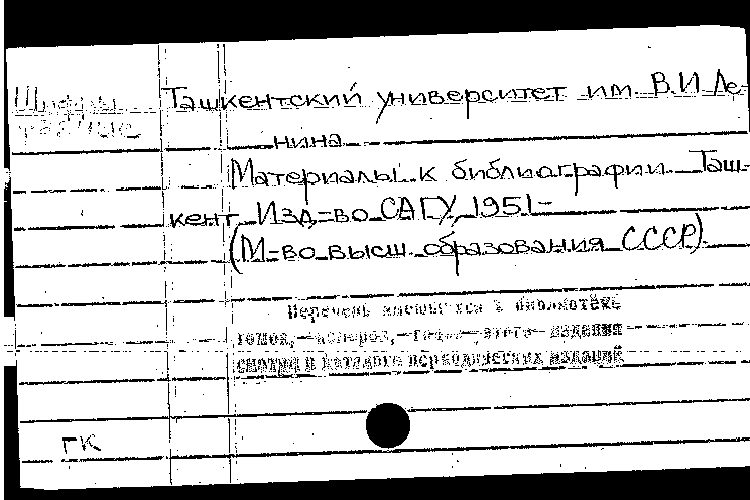 Шифры Ташкентский университет им. В.И. Ле-
нина
Материалы к библиографии. Таш-
кент, Изд-во САГУ, 1951-
(М-во высш. образования СССР).
Перечень имеющихся в библиотеке
томов, номеров, годов этого издания
смотри в каталоге периодических изданий
ГК